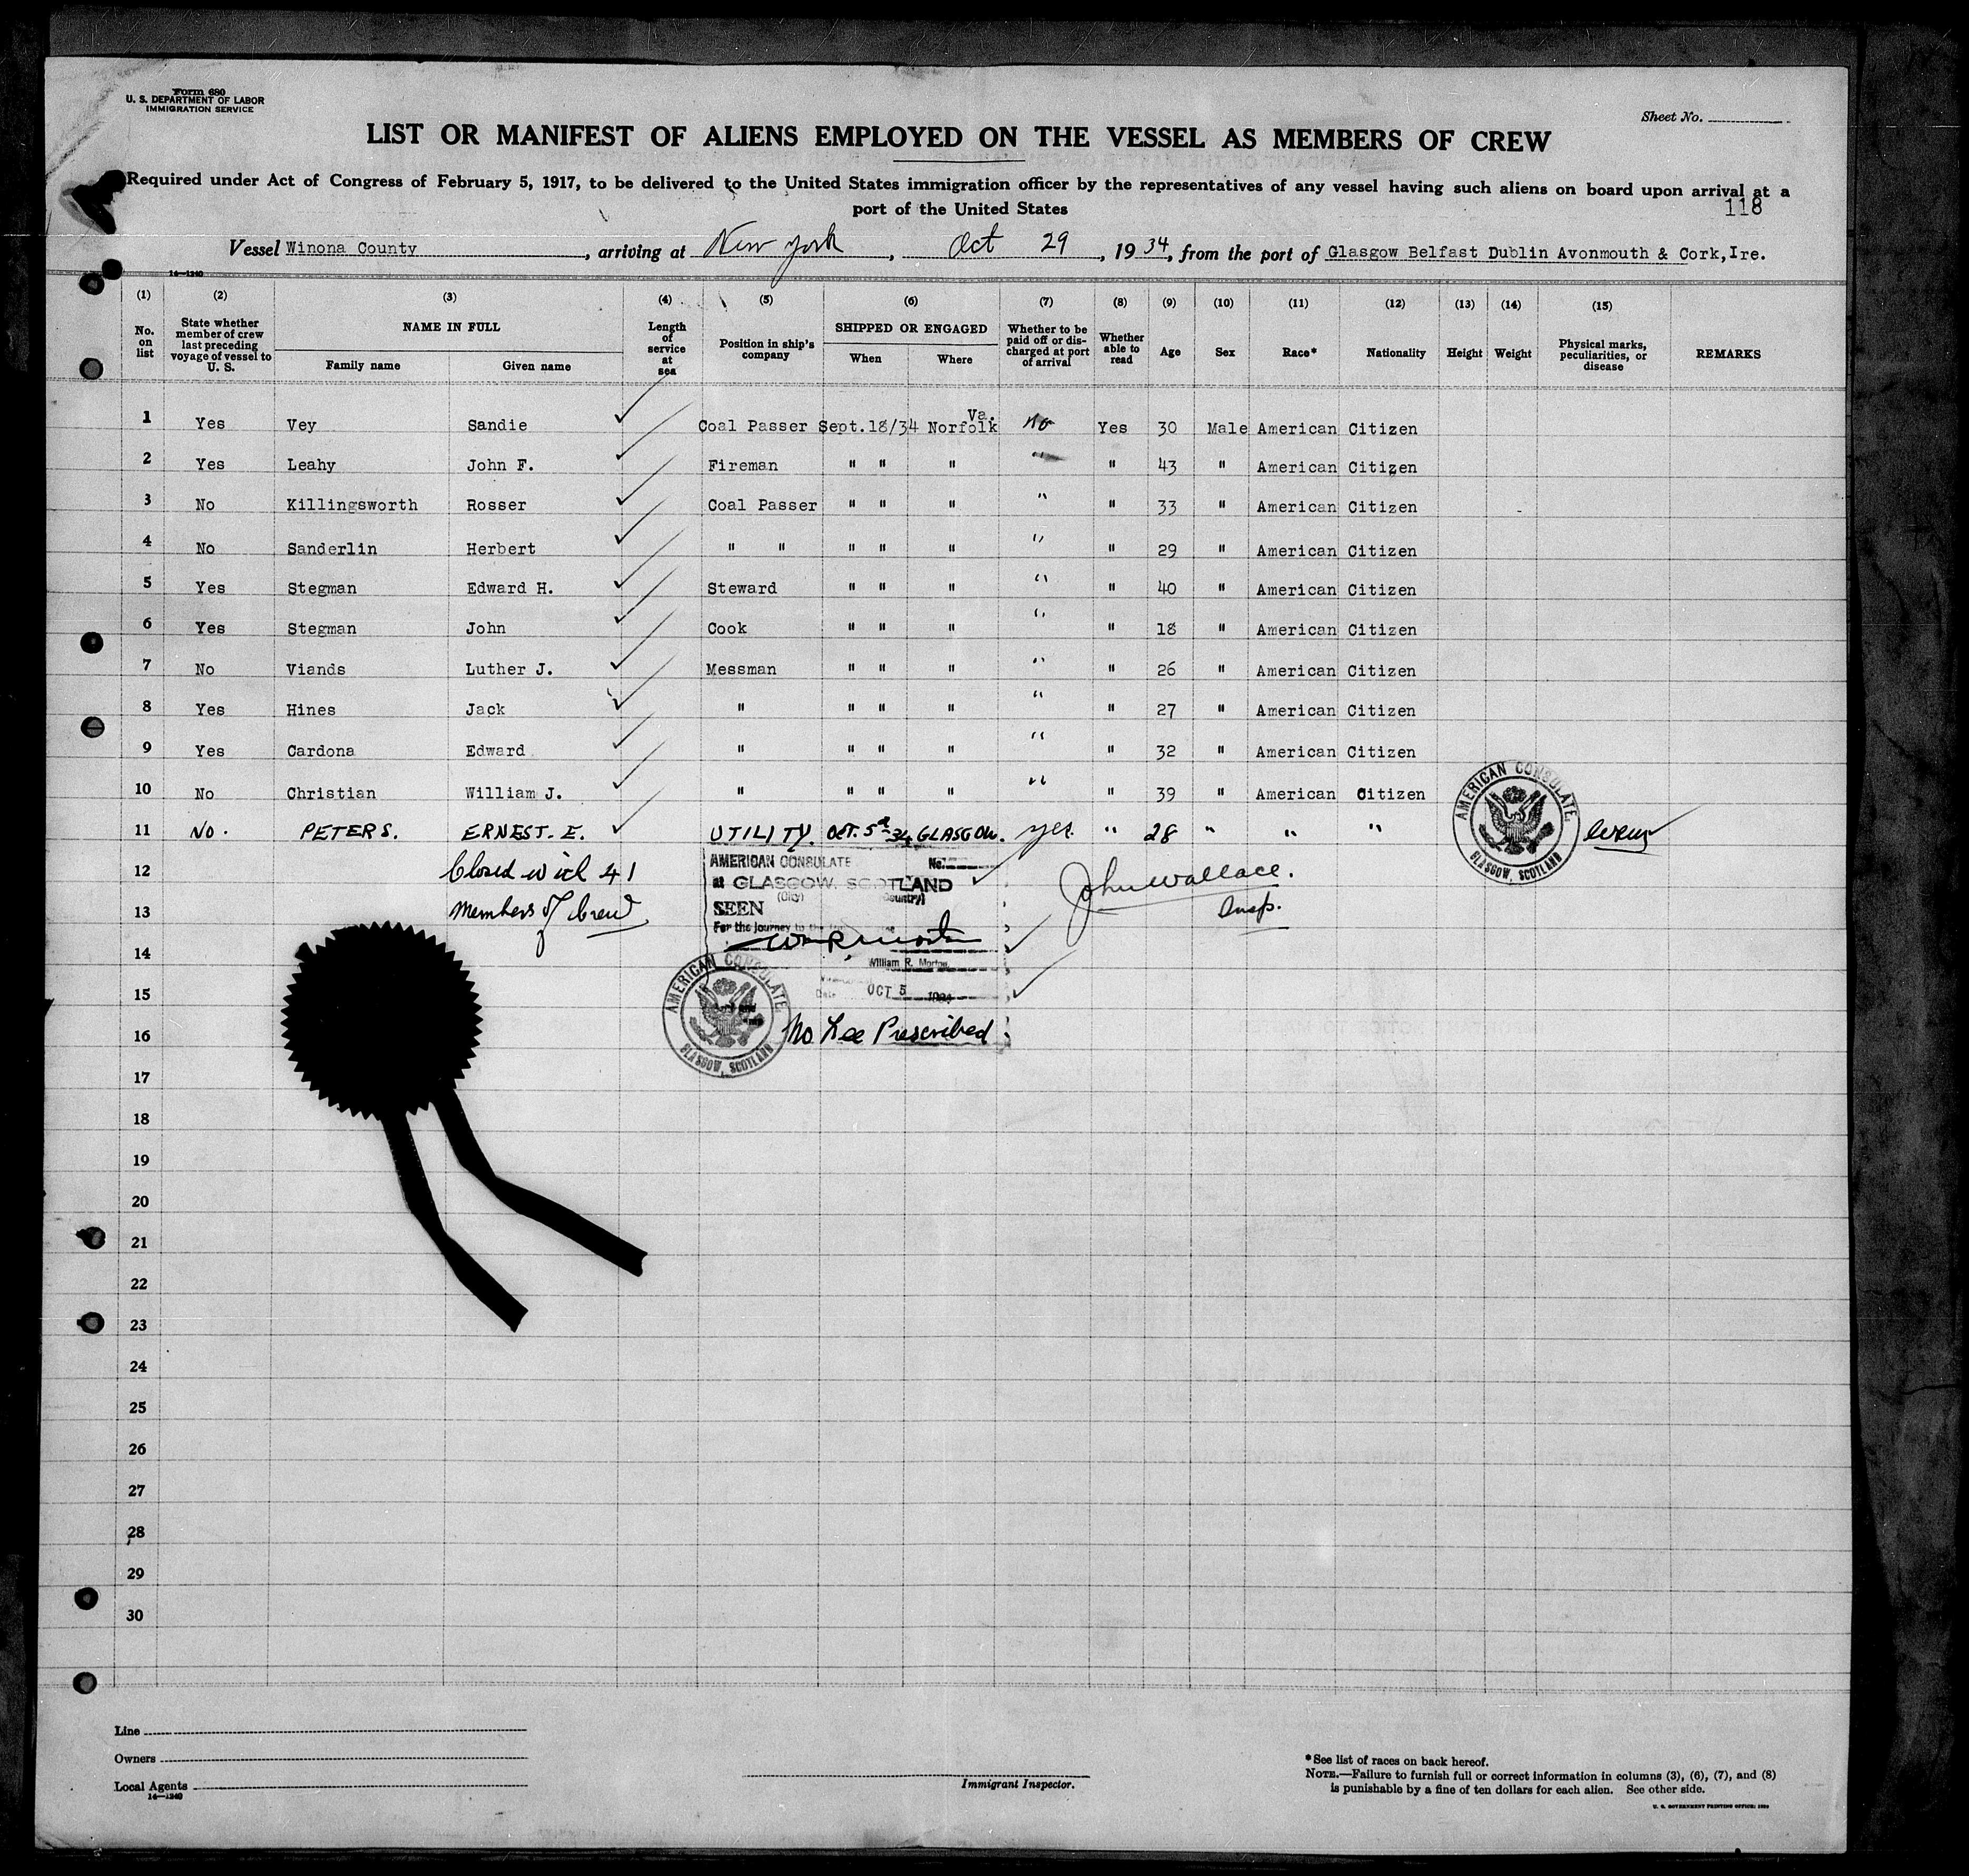 Form 680
U. S. DEPARTMENT OF LABOR
IMMIGRATION SERVICE
Sheet No.
LIST OR MANIFEST OF ALIENS EMPLOYED ON THE VESSEL AS MEMBERS OF CREW
Required under Act of Congress of February 5, 1917, to be delivered to the United States immigration officer by the representatives of any vessel having such aliens on board upon arrival at a
port of the United States
118
Vessel Winona County, arriving at New York, Oct 29, 1934, from the port of Glasgow Belfast Dublin Avonmouth & Cork, Ire.
14—1240
(1) (2) (3) (4) (5) (6) (7) (8) (9) (10) (11) (12) (13) (14) (15)
No. on list
State whether member of crew last preceding voyage of vessel to U. S.
NAME IN FULL
Family name
Given name
Length of service at sea
Position in ship's company
SHIPPED OR ENGAGED
When
Where
Whether to be paid off or discharged at port of arrival
Whether able to read
Age
Sex
Race*
Nationality
Height
Weight
Physical marks, peculiarities, or disease
REMARKS
1 Yes Vey Sandie Coal Passer Sept.18/34 Norfolk Va. No Yes 30 Male American Citizen
2 Yes Leahy John F. Fireman " " " " " 43 " American Citizen
3 No Killingsworth Rosser Coal Passer " " " " " 33 " American Citizen
4 No Sanderlin Herbert " " " " " " " 29 " American Citizen
5 Yes Stegman Edward H. Steward " " " " " 40 " American Citizen
6 Yes Stegman John Cook " " " " " 18 " American Citizen
7 No Viands Luther J. Messman " " " " " 26 " American Citizen
8 Yes Hines Jack " " " " " " 27 " American Citizen
9 Yes Cardona Edward " " " " " " 32 " American Citizen
10 No Christian William J. " " " " " " 39 " American Citizen
11 No. PETERS. ERNEST. E. UTILITY. OCT. 5th-34 GLASGOW. yes. " 28 " " "
AMERICAN CONSULATE, GLASGOW, SCOTLAND
12 Closed with 41
13 Members of Crew
AMERICAN CONSULATE No.
at GLASGOW, SCOTLAND
(City) (Country)
SEEN
For the journey to the
Wm R Morton
William R. Morton
Date OCT 5 1934
No Fee Prescribed
AMERICAN CONSULATE, GLASGOW, SCOTLAND
John Wallace.
Insp.
14
15
16
17
18
19
20
21
22
23
24
25
26
27
28
29
30
Line
Owners
Local Agents
14—1240
Immigrant Inspector.
*See list of races on back hereof.
NOTE.—Failure to furnish full or correct information in columns (3), (6), (7), and (8)
is punishable by a fine of ten dollars for each alien. See other side.